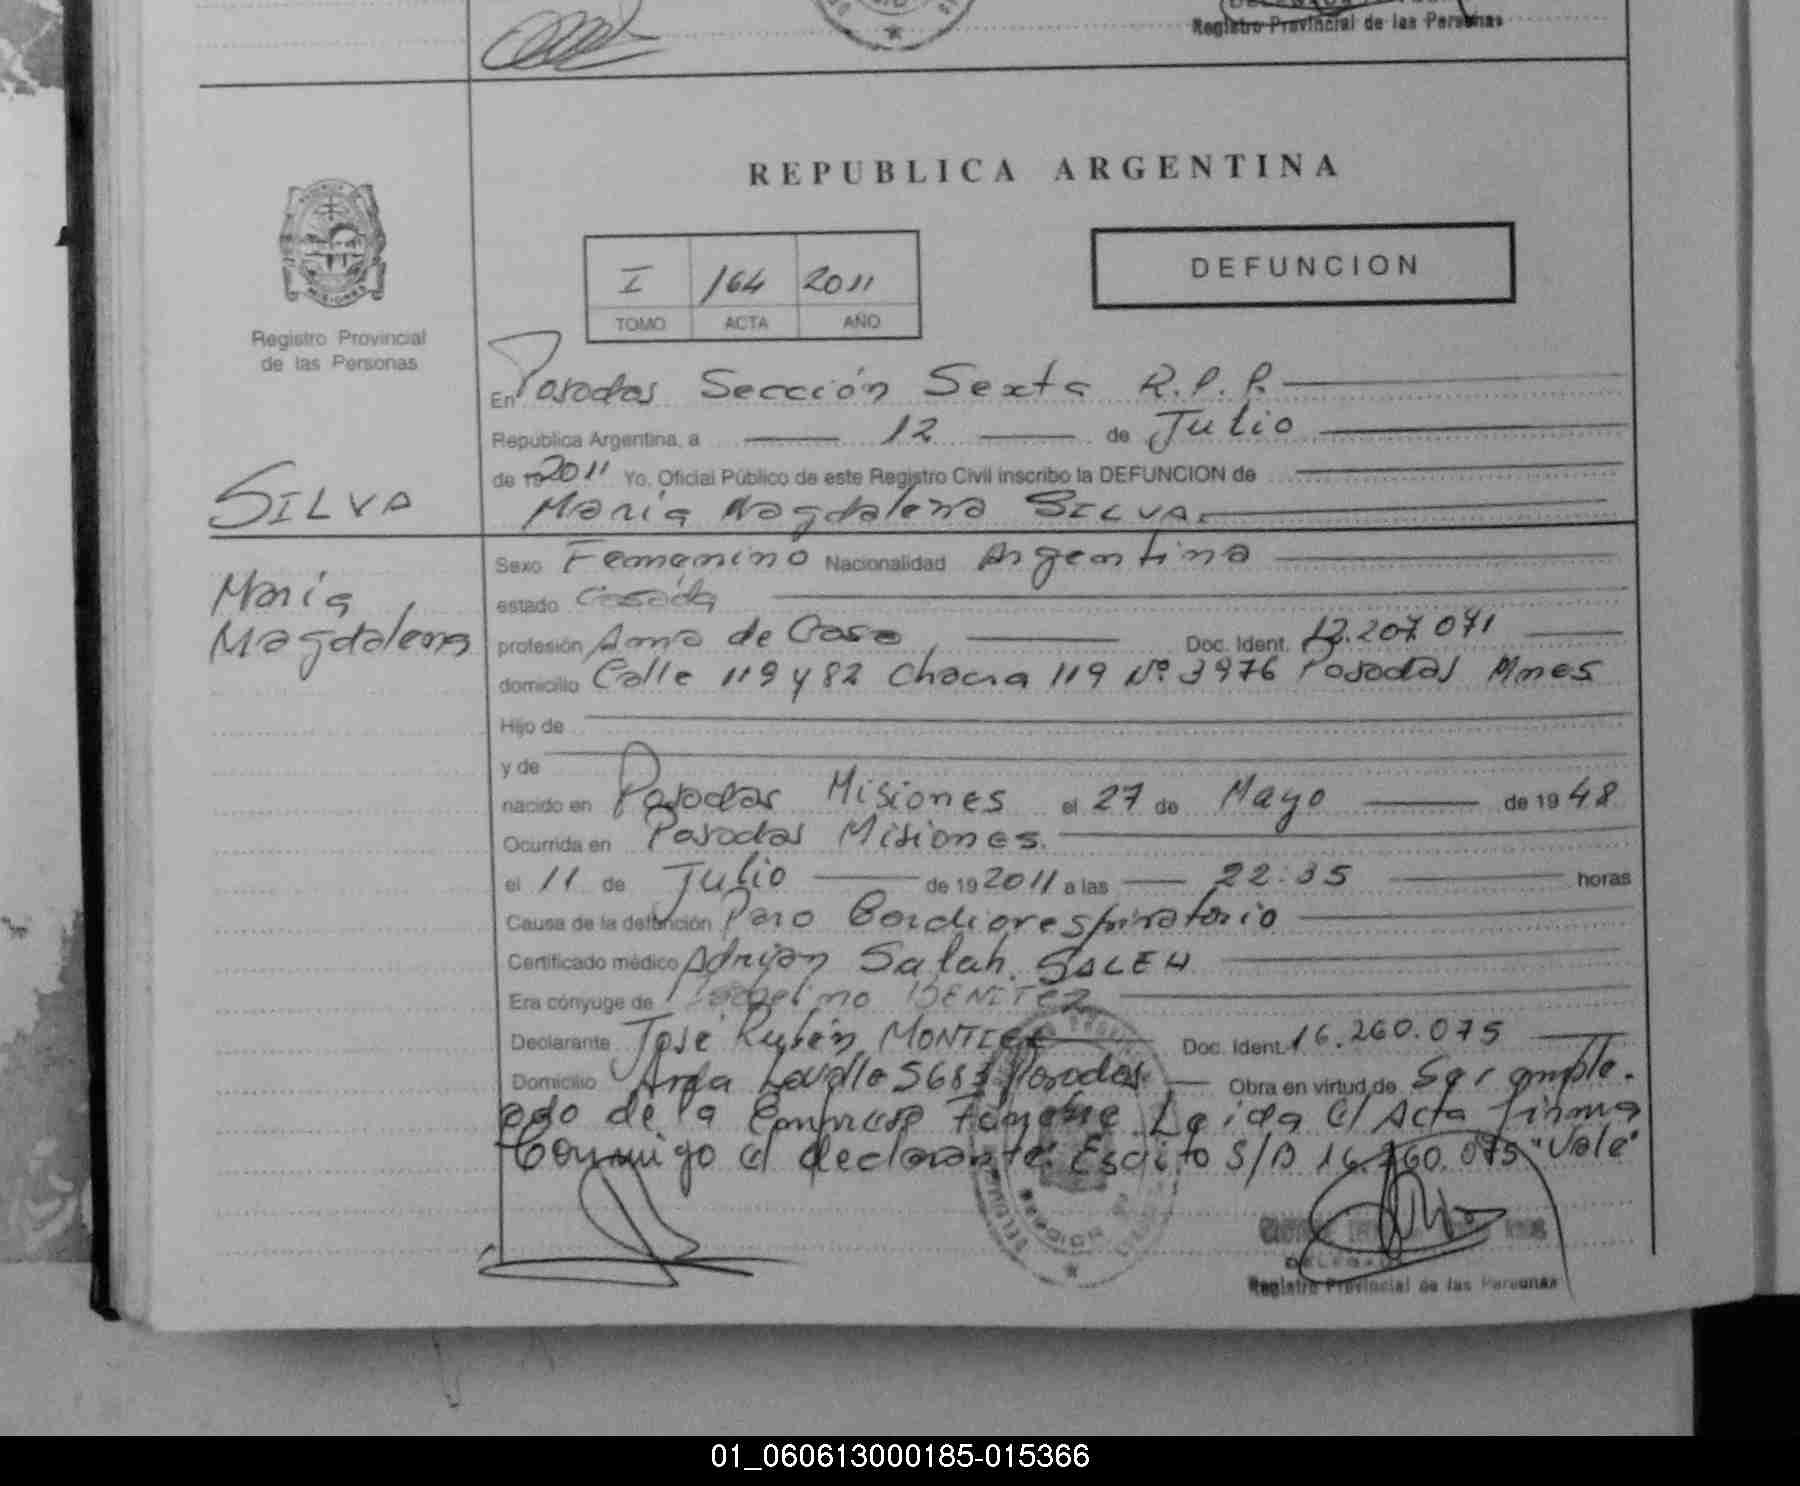 Registro Provincial de las Personas
REPUBLICA ARGENTINA
MISIONES
Registro Provincial
de las Personas
I 164 2011
TOMO ACTA AÑO
DEFUNCION
En Posadas Sección Sexta R.P.P.
Republica Argentina, a 12 de Julio
de 19 2011 Yo, Oficial Público de este Registro Civil inscribo la DEFUNCION de
SILVA
María Magdalena SILVA.
María
Magdalena
Sexo Femenino Nacionalidad Argentina
estado Casada
profesión Ama de Casa Doc. Ident. 12.207.071
domicilio Calle 119 y 82 Chacra 119 Nº 3976 Posadas Mnes
Hijo de
y de
nacido en Posadas Misiones el 27 de Mayo de 19 48
Ocurrida en Posadas Misiones.
el 11 de Julio de 19 2011 a las 22:35 horas
Causa de la defunción Paro Cardiorespiratorio
Certificado médico Adrián Salah SALEH
Era cónyuge de BENITEZ
Declarante José Rubén Doc. Ident. 16.260.075
Domicilio Lavalle Posadas Obra en virtud de Ser emple-
ado de la Empresa Fúnebre Leída el Acta firma
Conmigo el declarante. Escrito S/B 16.260.075 "Vale"
DELEGADO
Registro Provincial de las Personas
01_060613000185-015366